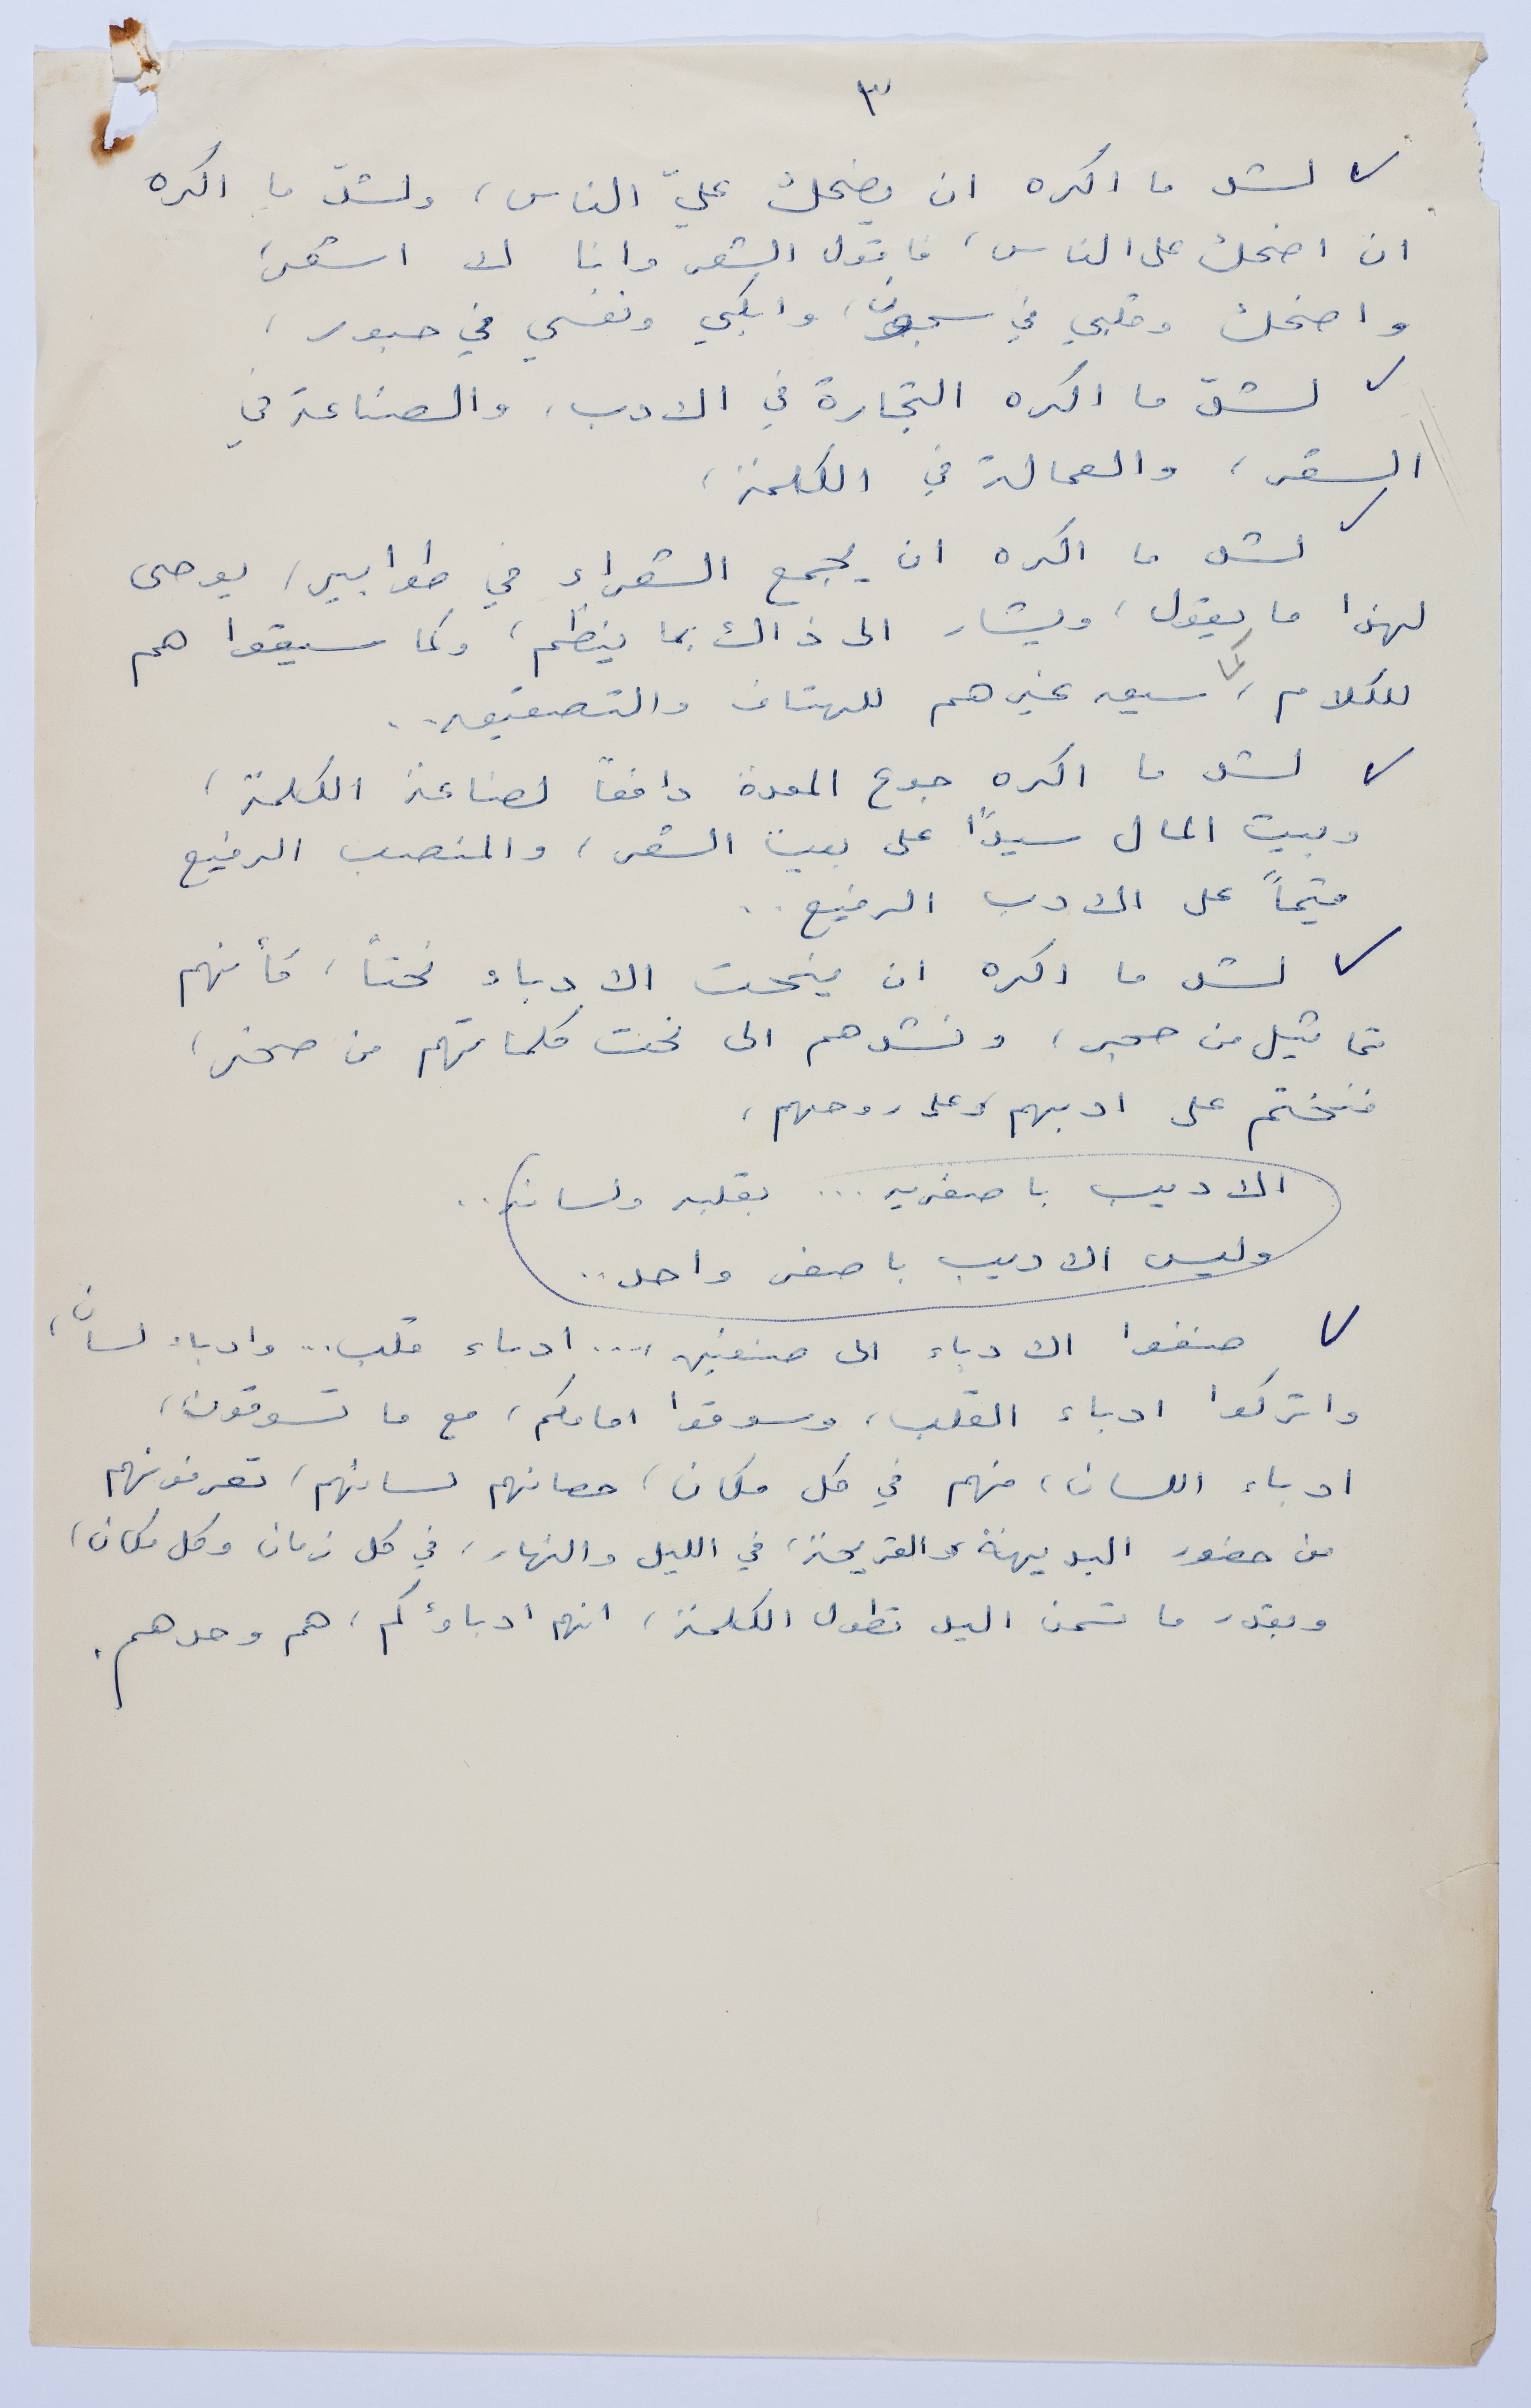 ٣
لشد ما اكره ان يضحك عليّ الناس، ولشدّ ما اكره
ان اضحك على الناس، فاقول الشعر وانا لا اشعر،
واضحك وقلبي في سجون، وابكي ونفسي في حبور،
لشدّ ما اكره التجارة في الادب، والصناعة في
الشعر، والعمالة في الكلمة،
لشد ما اكره ان يجمع الشعراء في طوابير، يوحى
لهذا ما يقول، ويشار الى ذاك بما ينظم، وكما سيقوا هم
للكلام، كما سيق غيرهم للهتاف والتصفيق..
لشد ما اكره جوع المعدة دافعاً لصناعة الكلمة،
وبيت المال سيداً على بيت الشعر، والمنصب الرفيع
قيماً على الادب الرفيع..
لشد ما اكره ان ينحت الادباء نحتاً، كأنهم
تماثيل من حجر، ونشدهم الى نحت كلماتهم من صخر،
فنختم على ادبهم وعلى روحهم،
الاديب باصغريه... بقلبه ولسانه..
وليس الاديب باصغر واحد..
صنفوا الادباء الى صنفين،... ادباء قلب.. وادباء لسان،
واتركوا ادباء القلب، وسوقوا امامكم، مع ما تسوقون،
ادباء اللسان، فهم في كل مكان، حصانهم لسانهم، تعرفونهم
من حضور البديهة والقريحة، في الليل والنهار، في كل زمان وكل مكان،
وبقدر ما تسمن اليد تطول الكلمة، انهم ادباؤكم، هم وحدهم.